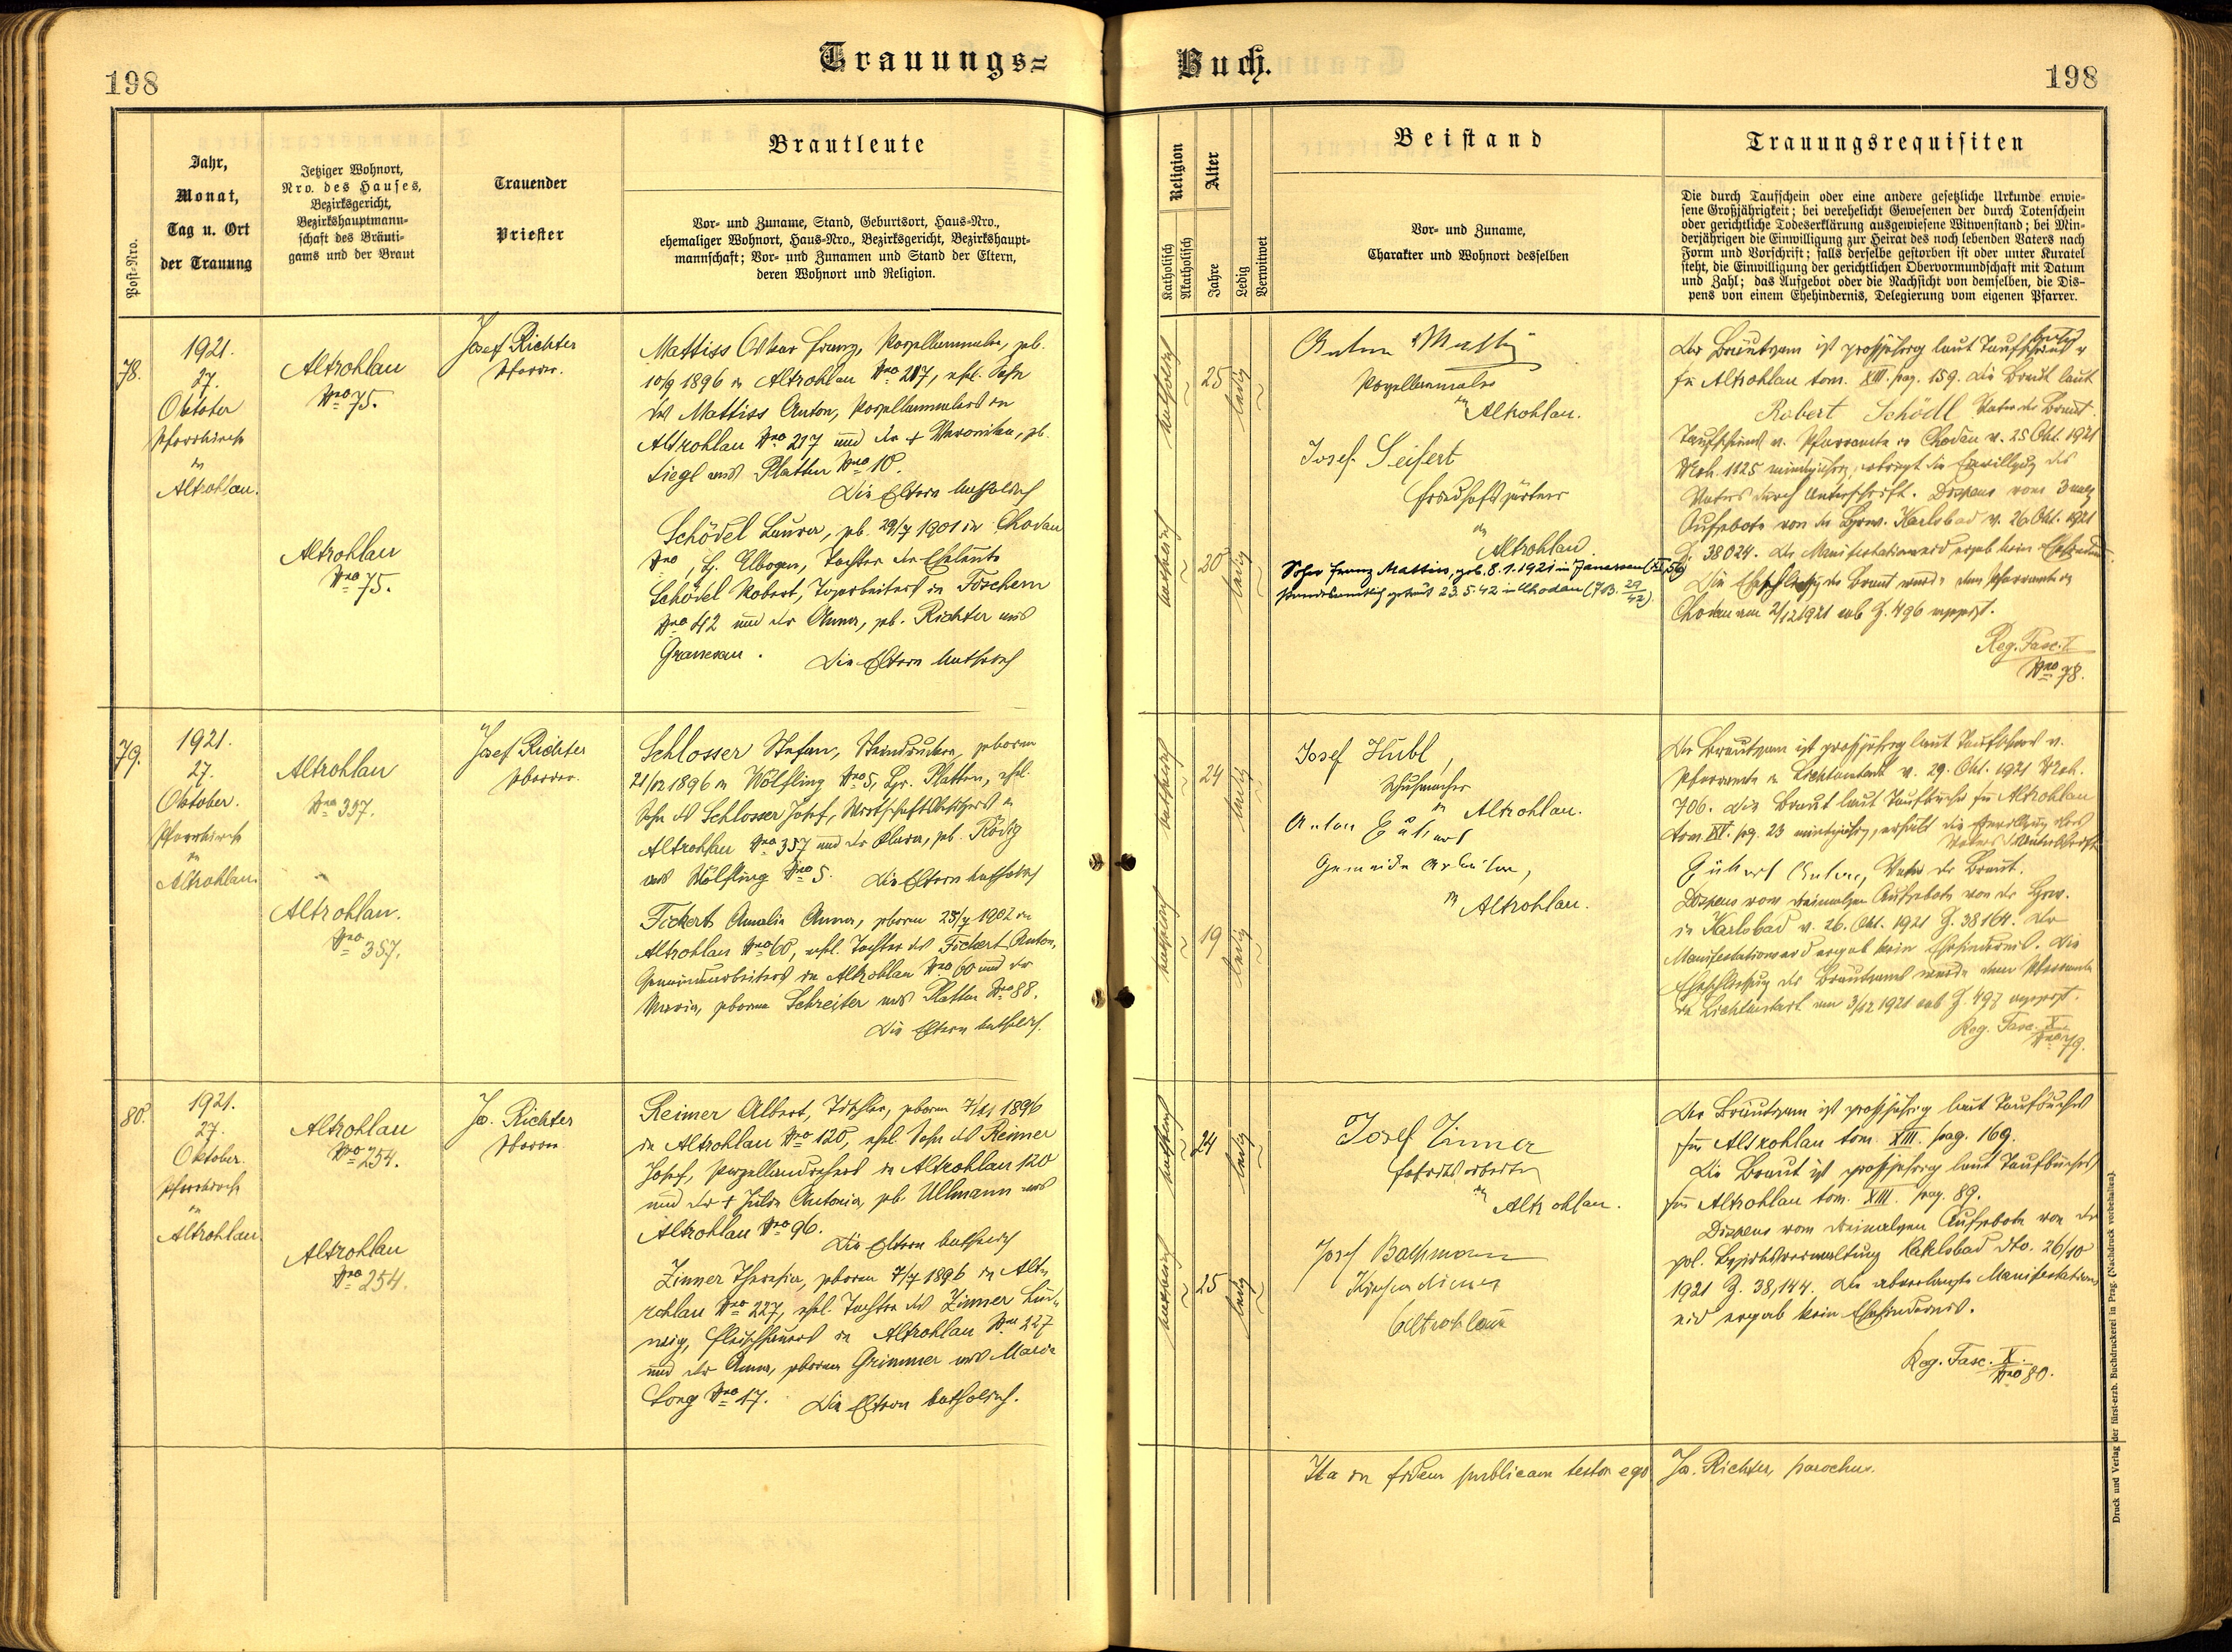 198
Trauungs=
Buch.
198
Post-Nro.
Jahr,
Monat,
Tag u. Ort
der Trauung
Jetziger Wohnort,
Nro. des Hauses,
Bezirksgericht,
Bezirkshauptmann-
schaft des Bräuti-
gams und der Braut
Trauender
Priester
Brautleute
Vor- und Zuname, Stand, Geburtsort, Haus-Nro.,
ehemaliger Wohnort, Haus-Nro., Bezirksgericht, Bezirkshaupt-
mannschaft; Vor- und Zunamen und Stand der Eltern,
deren Wohnort und Religion.
Religion
Katholisch
Akatholisch
Alter
Jahre
Ledig
Verwitwet
Beistand
Vor- und Zuname,
Charakter und Wohnort desselben
Trauungsrequisiten
Die durch Taufschein oder eine andere gesetzliche Urkunde erwie-
sene Großjährigkeit; bei verehelicht Gewesenen der durch Totenschein
oder gerichtliche Todeserklärung ausgewiesene Witwenstand; bei Min-
derjährigen die Einwilligung zur Heirat des noch lebenden Vaters nach
Form und Vorschrift; falls derselbe gestorben ist oder unter Kuratel
steht, die Einwilligung der gerichtlichen Obervormundschaft mit Datum
und Zahl; das Aufgebot oder die Nachsicht von demselben, die Dis-
pens von einem Ehehindernis, Delegierung vom eigenen Pfarrer.
78.
1921.
27.
Oktober
Pfarrkirche
in
Altrohlau.
Altrohlau
Nro 75.
Altrohlau
Nro 75.
Josef Richter
Pfarrer.
Mattiss Oskar Franz, Porzellanmaler, geb.
10/9 1896 in Altrohlau Nro 217, ehel. Sohn
des Mattiss Anton, Porzellanmalers in
Altrohlau Nro 217 und der + Veronika, geb.
Siegl aus Platten Nro 10.
Die Eltern katholisch
Schödel Laura, geb. 29/7 1901 in Chodau
Nro , B. Elbogen, Tochter der Eheleute
Schödel Robert, Tagarbeiters in Töschern
Nro 42 und der Anna, geb. Richter aus
Granesau. Die Eltern katholisch
katholisch
25
ledig
katholisch
20
ledig
Anton Mattis
Porzellanmaler
in Altrohlau.
Josef Seifert
Friedhofsgärtner
in
Altrohlau.
Sohn Franz Mattiss, geb. 8.1.1921 in Janessen
standesamtlich getraut 23.5.42 in Chodau
Der Bräutigam ist großjährig laut Taufbuch
für Altrohlau tom. XIII. pag. 159. Die Braut laut
Robert Schödl Vater der Braut.
Taufscheins v. Pfarramte in Chodau v. 25 Okt. 1921
Mrh. 1125 minderjährig, erbringt die Einwilligung des
Vaters durch Unterschrift. Dispens vom 3 mal.
Aufgebote von der Bzrw. Karlsbad v. 26 Okt. 1921
Z. 38024. Der Manifestationseid ergab kein Ehehindernis.
Die Eheschließung der Braut wurde dem Pfarramte in
Chodau am 2/12 1921 sub Z. 496 angezt.
Reg. Fasc. X
Nro 78.
79.
1921.
27.
Oktober.
Pfarrkirche
in
Altrohlau.
Altrohlau
Nro 357.
Altrohlau.
Nro 357.
Josef Richter
Pfarrer.
Schlosser Stefan, Steindrucker, geboren
21/12 1896 in Wölfling Nro 5, Bzr. Platten, ehel.
Sohn des Schlosser Josef, Wirtschaftsbesitzers in
Altrohlau Nro 357 und der Klara, geb. Rödig
aus Wölfling Nro 5. Die Eltern katholisch
Fickert Amalia Anna, geboren 25/7 1902 in
Altrohlau Nro 60, ehel. Tochter des Fickert Anton,
Gemeindearbeiters in Altrohlau Nro 60 und der
Maria, geborene Schreiter aus Platten Nro 88.
Die Eltern katholisch.
katholisch
24
ledig
katholisch
19
ledig
Josef Hubl,
Schuhmacher
in Altrohlau.
Anton
Gemeinde Arbeiter,
in Altrohlau.
Der Bräutigam ist großjährig laut Taufscheins v.
Pfarramte in Lichtenstadt v. 29. Okt. 1921 Mrh.
706. Die Braut laut Taufbuche für Altrohlau
tom XV. pag. 23 minderjährig, erhält die Einwilligung des
Vaters d. Unterschrift.
Anton, Vater der Braut.
Dispens vom dreimaligen Aufgebote von der Bzrw.
in Karlsbad v. 26. Okt. 1921 Z. 38164. Der
Manifestationseid ergab kein Ehehindernis. Die
Eheschließung des Bräutigams wurde dem Pfarramte
in Lichtenstadt am 3/12 1921 sub Z. 497 angezt.
Reg. Fasc. X
Nro 79.
80.
1921.
27.
Oktober.
Pfarrkirche
in
Altrohlau.
Altrohlau
Nro 254.
Altrohlau
Nro 254.
Jos. Richter
Pfarrer
Reimer Albert, Tischler, geboren 7/11 1896
in Altrohlau Nro 120, ehel. Sohn des Reimer
Josef, Porzellandrehers in Altrohlau 120
und der + Julie Antonia, geb. Ullmann aus
Altrohlau Nro 96.
Die Eltern katholisch
Zinner Theresia, geboren 7/7 1896 in Alt-
rohlau Nro 227, ehel. Tochter des Zinner Lud-
wig, Fleischhauers in Altrohlau Nro 227
und der Anna, geborene Grimmer aus Maria
Sorg Nro 17. Die Eltern katholisch.
katholisch
24
ledig
katholisch
25
ledig
Josef Zinner
Fabriksarbeiter
in
Altrohlau.
Josef Bachmann
Kirchendiener
Altrohlau
Der Bräutigam ist großjährig laut Taufbuches
für Altrohlau tom. XIII. pag. 169.
Die Braut ist großjährig laut Taufbuches
für Altrohlau tom. XIII. pag. 89.
Dispens vom dreimaligen Aufgebote von der
pol. Bezirksverwaltung Karlsbad dto. 26/10
1921 Z. 38,144. Der abverlangte Manifestations
eid ergab kein Ehehindernis.
Reg. Fasc. X.
Nro 80.
Ita in fidem publicam testor ego Jos. Richter, parochus.
Druck und Verlag der fürst-erzb. Buchdruckerei in Prag. (Nachdruck vorbehalten.)